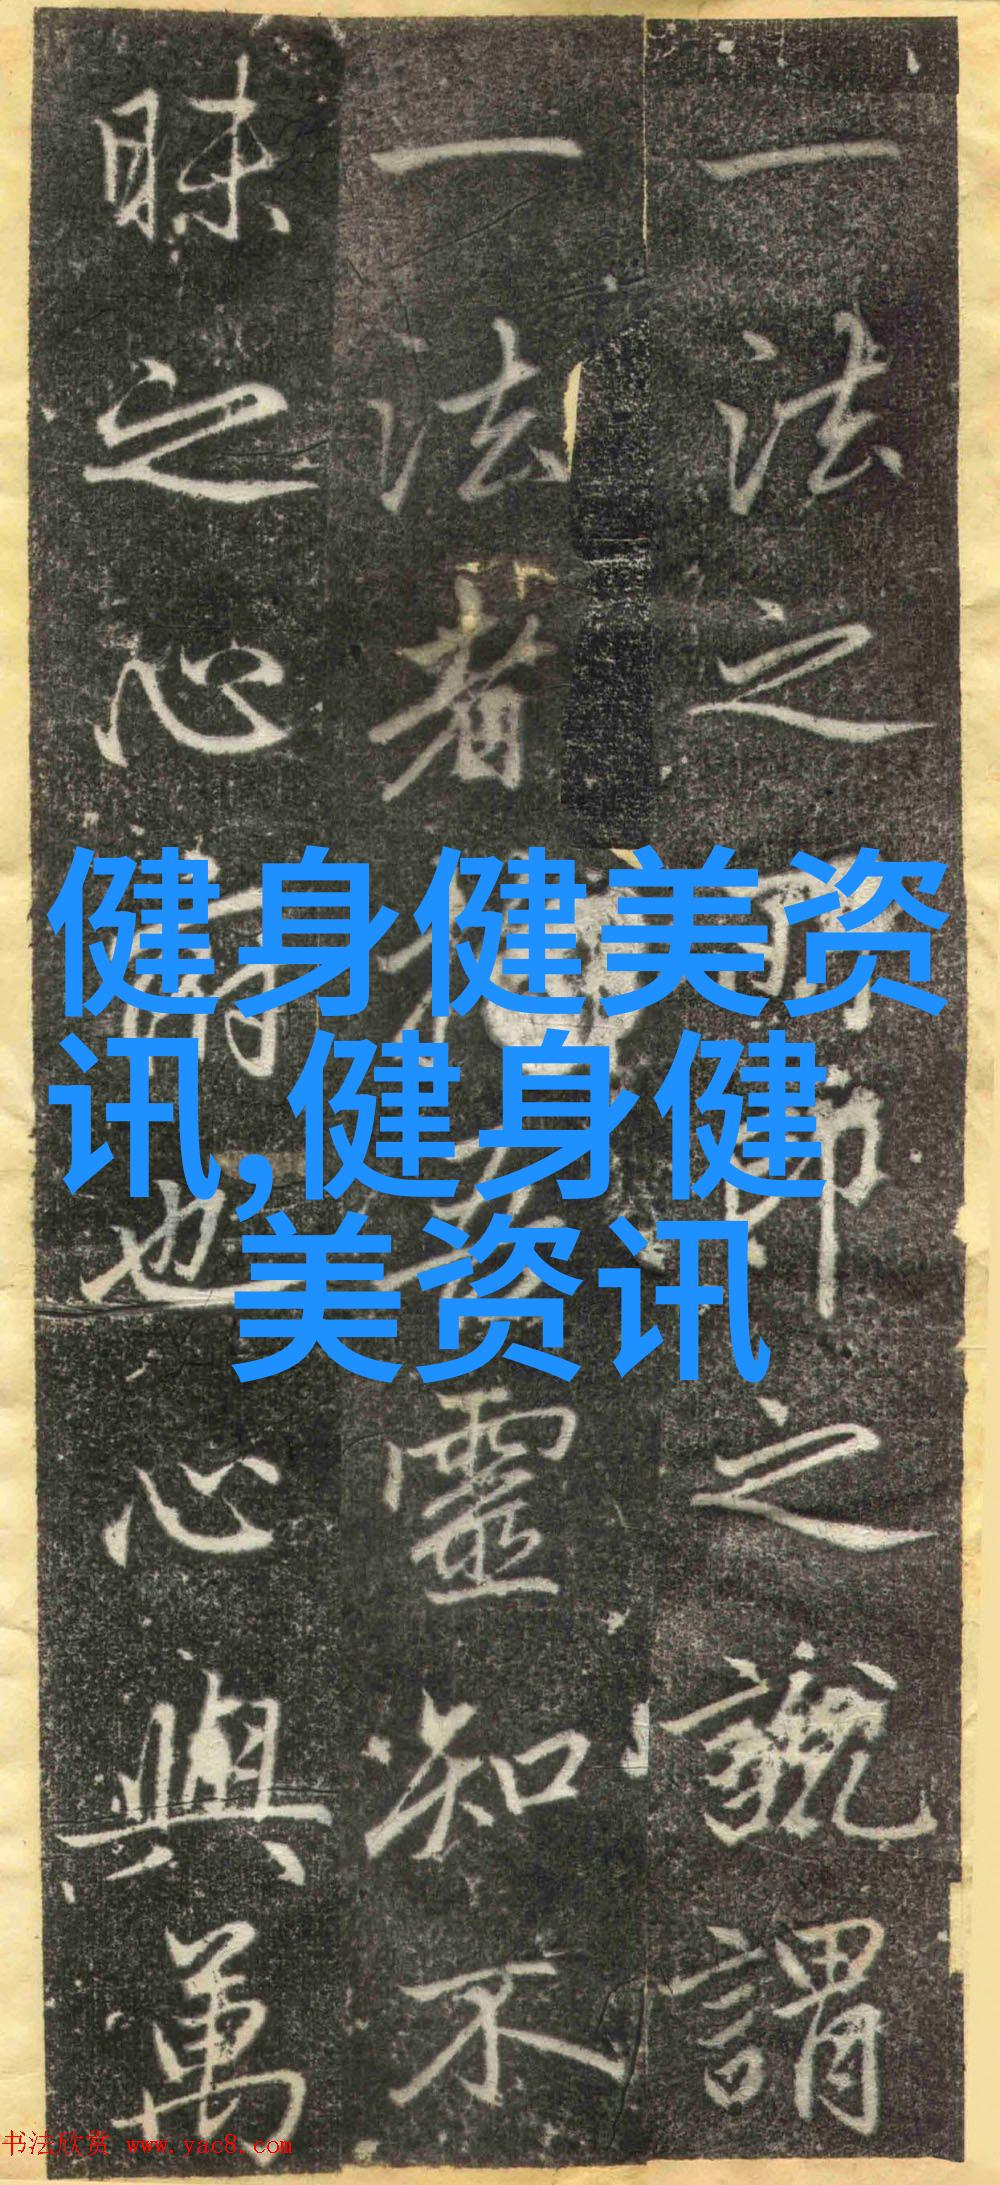 一法之之謂
一法者靈知不
昧之心也心與萬
健身健美资
讯,健身健
美资讯
书法欣赏 www.yac8.com